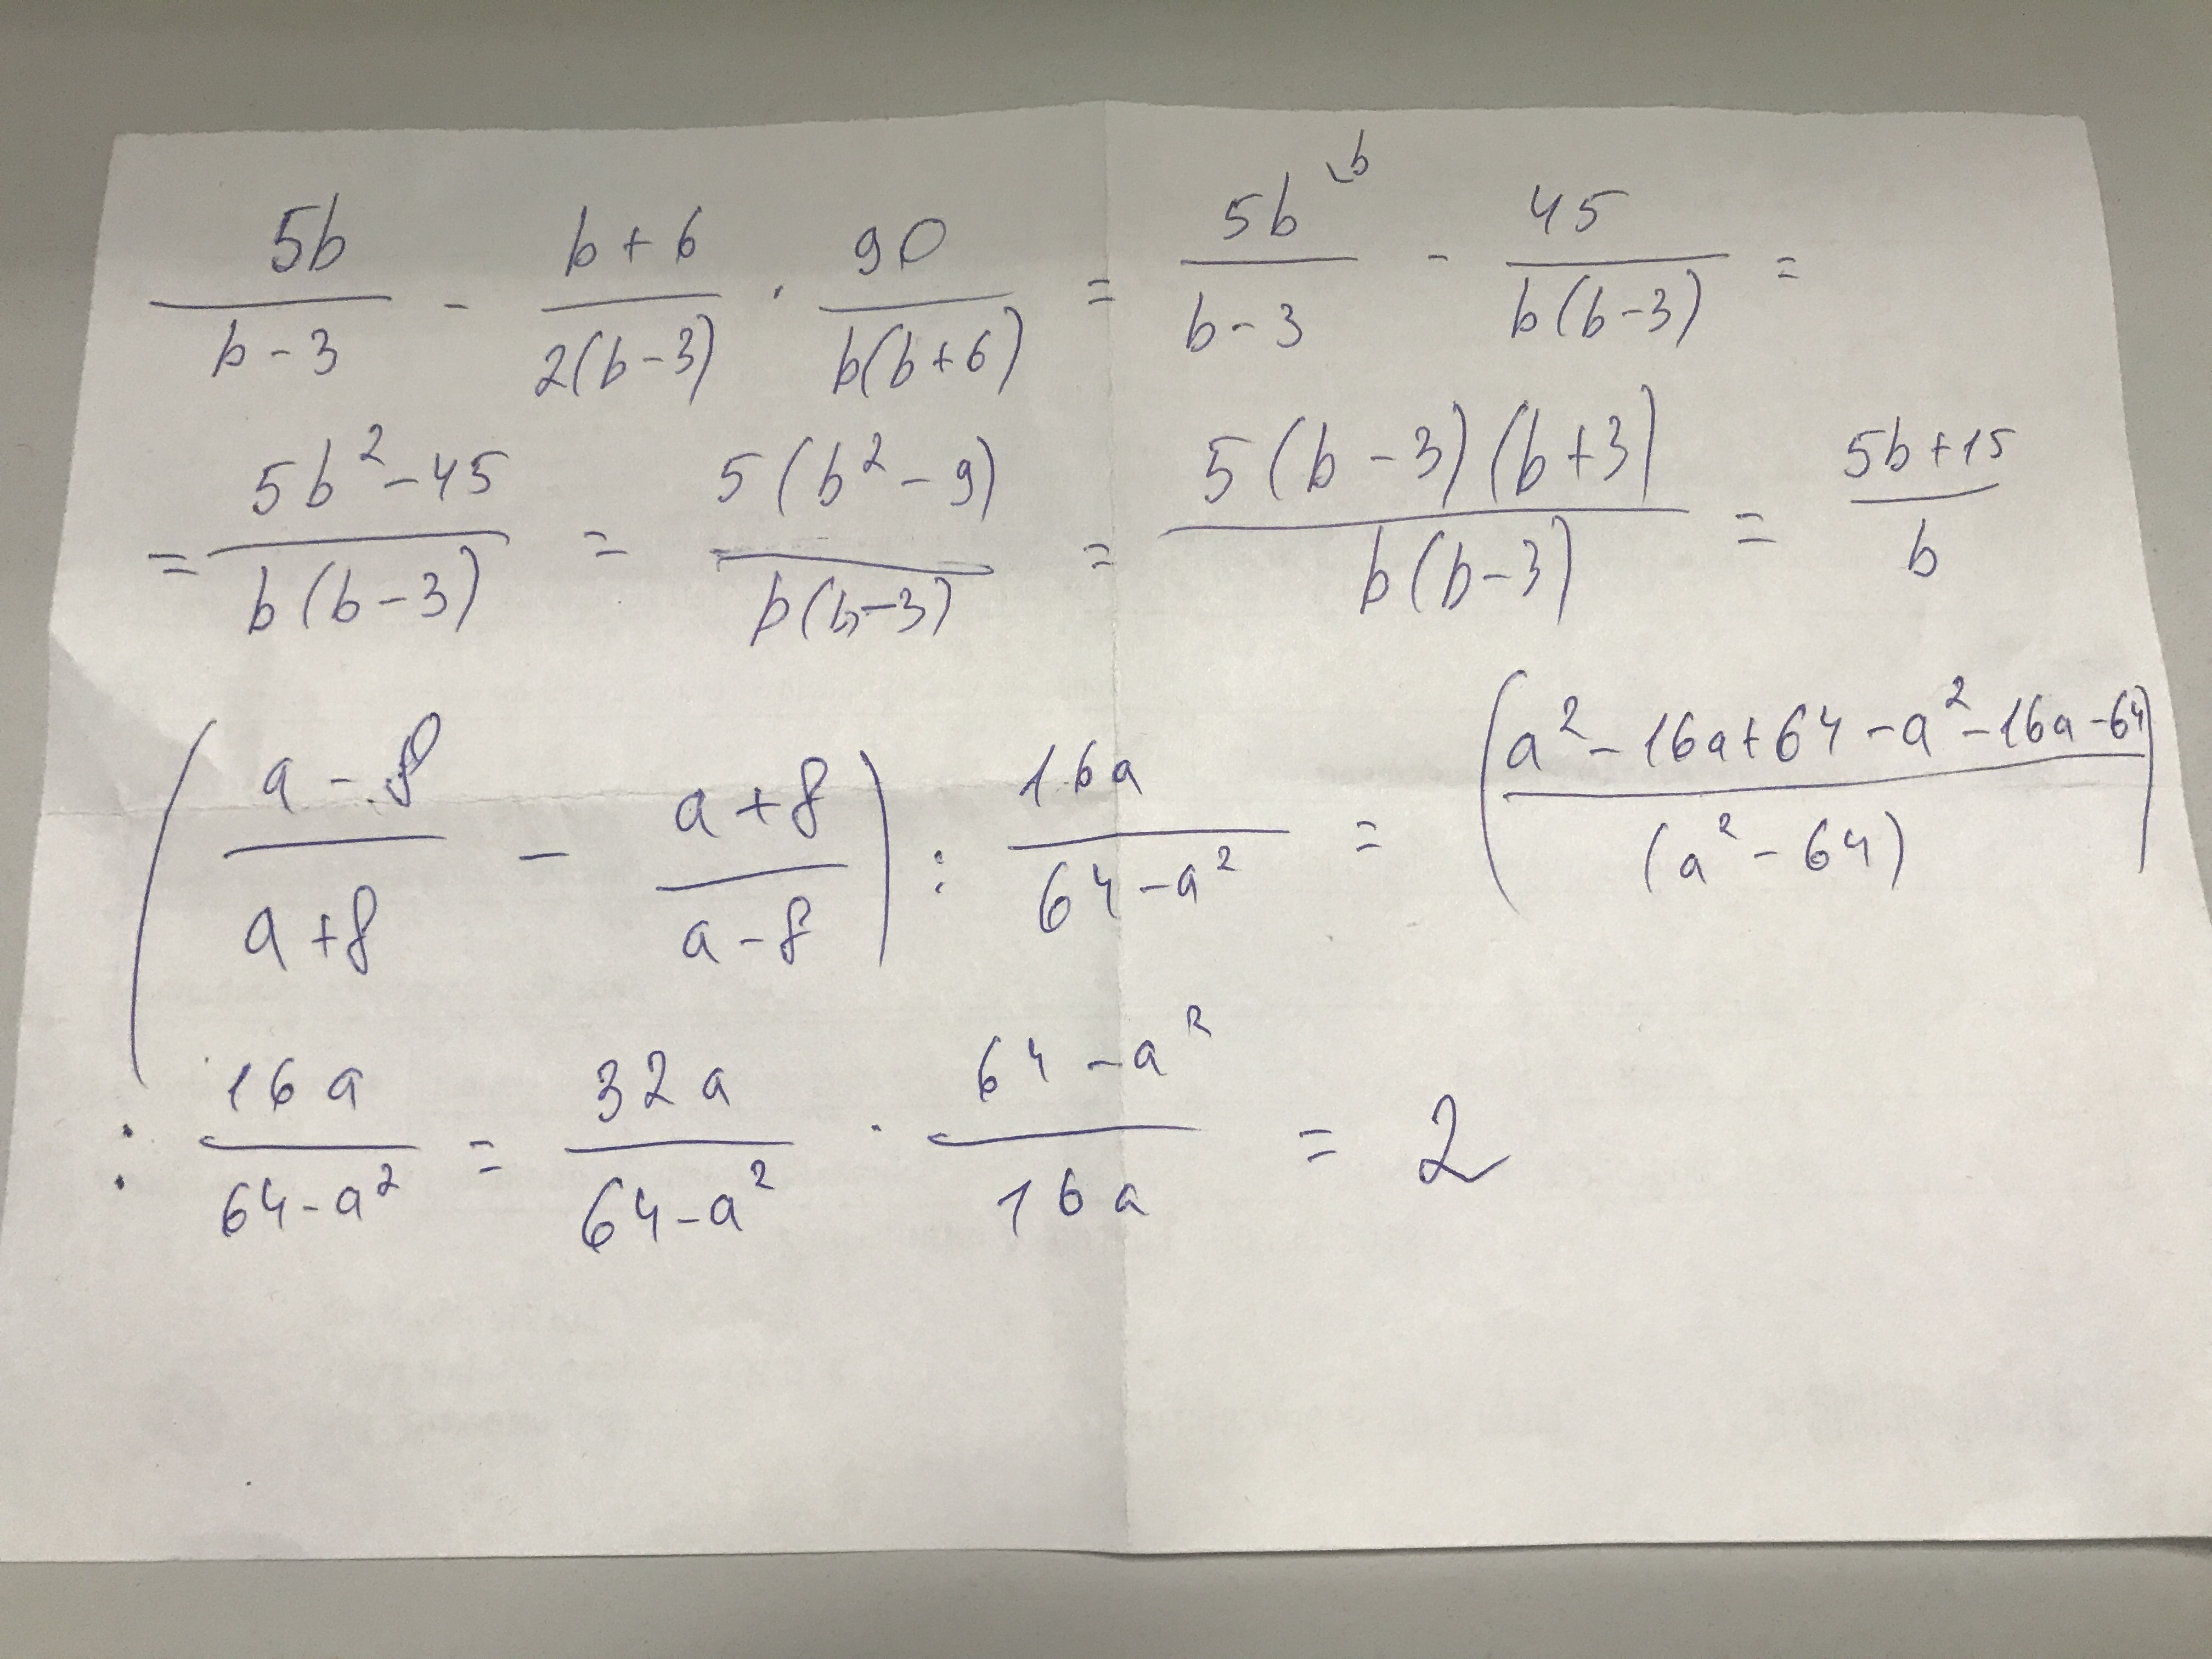 5b/(b-3) - (b+6)/(2(b-3)) · 90/(b(b+6)) = 5b^{\b}/(b-3) - 45/(b(b-3)) =
= (5b²-45)/(b(b-3)) = 5(b²-9)/(b(b-3)) = 5(b-3)(b+3)/(b(b-3)) = (5b+15)/b
((a-8)/(a+8) - (a+8)/(a-8)) : 16a/(64-a²) = ((a²-16a+64-a²-16a-64)/(a²-64))
: 16a/(64-a²) = 32a/(64-a²) · (64-a²)/(16a) = 2